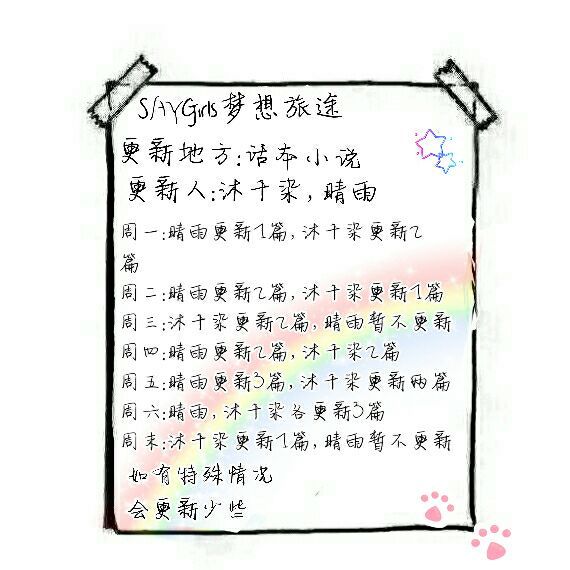 SAYGirls梦想旅途
更新地方:话本小说
更新人:沐千染,晴雨
周一:晴雨更新1篇,沐千染更新2
篇
周二:晴雨更新2篇,沐千染更新1篇
周三:沐千染更新2篇,晴雨暂不更新
周四:晴雨更新2篇,沐千染2篇
周五:晴雨更新3篇,沐千染更新两篇
周六:晴雨,沐千染各更新3篇
周末:沐千染更新1篇,晴雨暂不更新
如有特殊情况
会更新少些